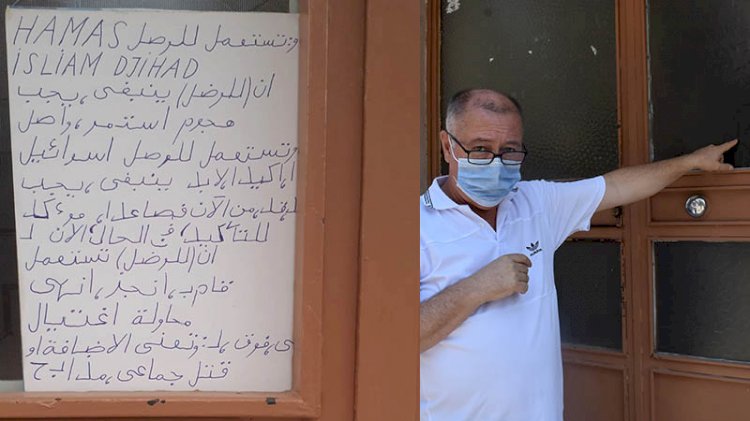 HAMAS وتستعمل للرصل
İSLİAM DJİHAD
ان (للرضل) ينبغي، يجب
هجوم استمر، واصل
وتستعمل للرصل اسرائيل
الابد ينبغي، يجب
من الآن فصاعدا،
للتأكيد، في الحال، الآن
ان (للرضل) تستعمل
قام بـ، انجز، انهى
محاولة اغتيال
فوق، وتعنى الاضافة او
قتل جماعي،